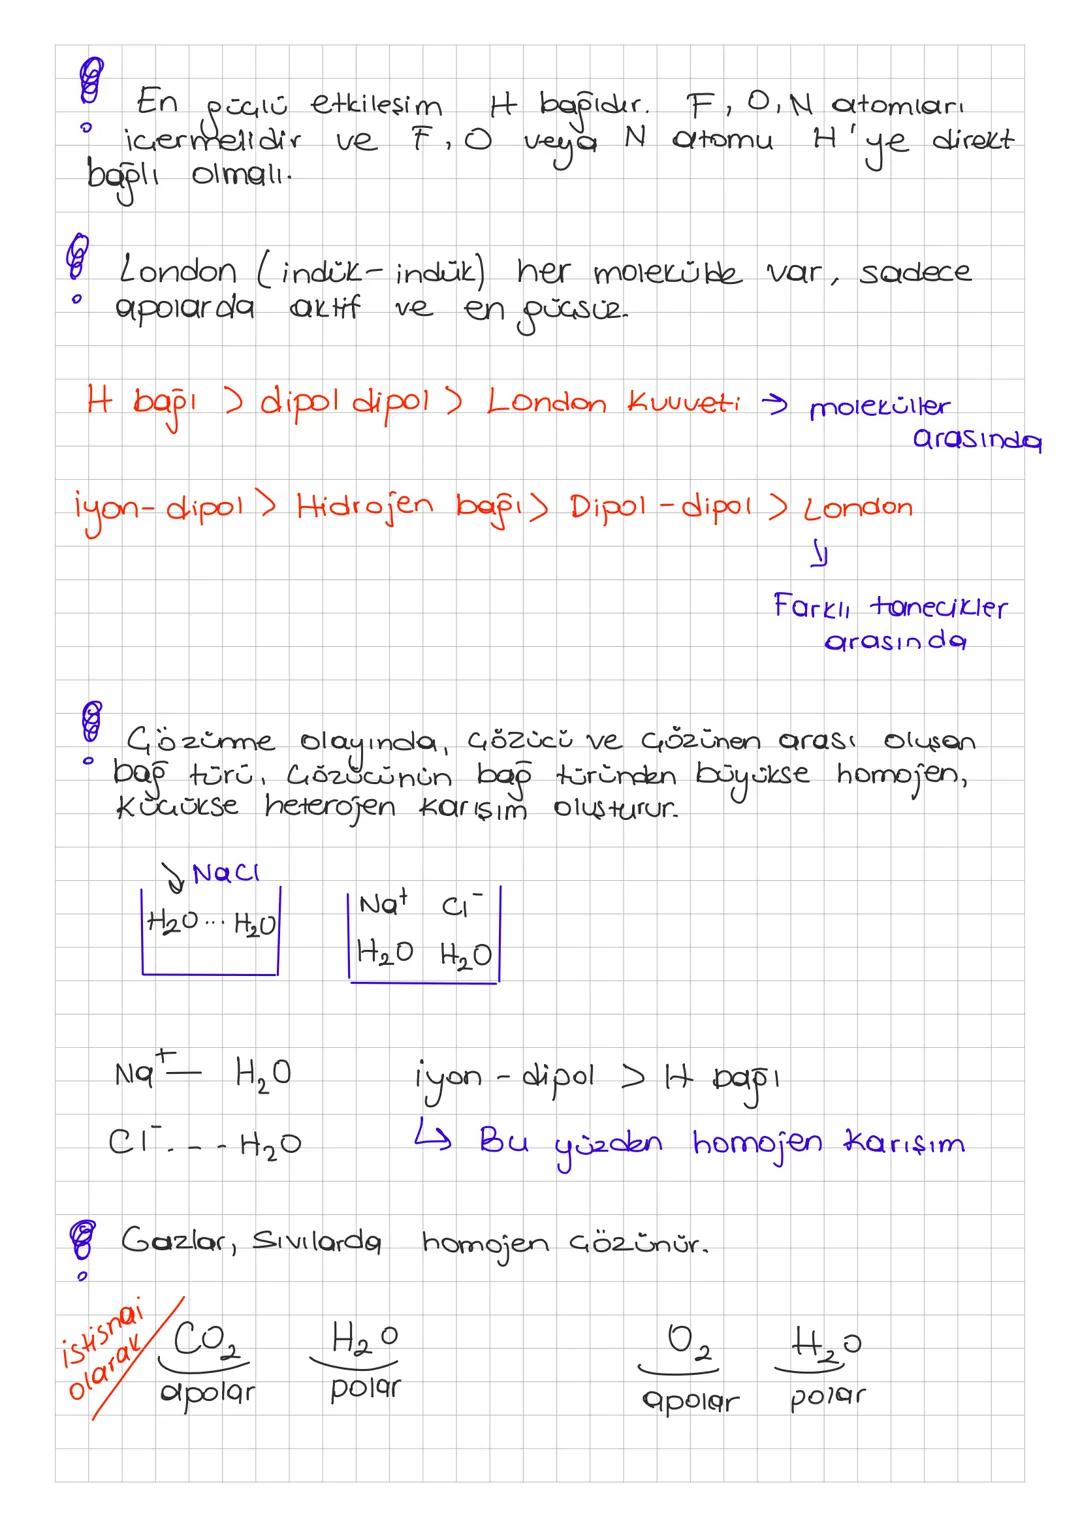 En güçlü etkileşim H bağıdır. F, O, N atomları
içermelidir ve F, O veya N atomu H'ye direkt
bağlı olmalı.
London (indük-indük) her molekülde var, sadece
apolarda aktif ve en güçsüz.
H bağı > dipol dipol > London kuvveti → moleküller
arasında
iyon-dipol > Hidrojen bağı > Dipol-dipol > London
↓
Farklı tanecikler
arasında
Çözünme olayında, çözücü ve çözünen arası oluşan
bağ türü, çözücünün bağ türünden büyükse homojen,
küçükse heterojen karışım oluşturur.
↓ NaCl
H₂O ... H₂O
Na⁺ Cl⁻
H₂O H₂O
Na⁺ — H₂O iyon-dipol > H bağı
Cl⁻. - - - H₂O ↳ Bu yüzden homojen karışım
Gazlar, sıvılarda homojen çözünür.
istisnai
olarak
CO₂ H₂O O₂ H₂O
apolar polar apolar polar